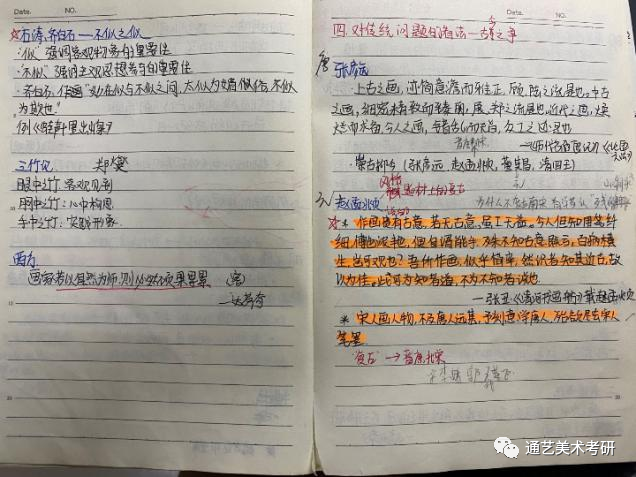 Date. NO.
石涛、齐白石——不似之似
"似"强调客观物象的重要性
"不似"强调主观思想参与的重要性
齐白石："作画妙在似与不似之间，太似为媚俗，不似
为欺世。"
例《蛙声十里出山泉》
三竹论 郑燮
眼中之竹：客观见到
胸中之竹：心中构思
手中之竹：实践形象
西方
画家若以自然为师，则必然硕果累累
——达芬奇
Date. NO.
四、对传统问题的看法——古今之争
唐 张彦远
上古之画，迹简意澹而雅正，顾、陆之流是也。中古
之画，细密精致而臻丽，展、郑之流是也。近代之画，焕
烂而求备。今人之画，错乱而无旨，众工之迹是也
——《历代名画记》
崇古
赵孟頫
作画贵有古意，若无古意，虽工无益。今人但知用笔纤
细，傅色浓艳，便自谓能手，殊不知古意既亏，百病横
生，岂可观也？吾所作画，似乎简率，然识者知其近古，故
以为佳。此可为知者道，不为不知者说也。
——张丑《清河书画舫》载赵孟頫
宋人画人物，不及唐人远甚，予刻意学唐人，殆欲尽去宋人
笔墨
"复古"→
通艺美术考研